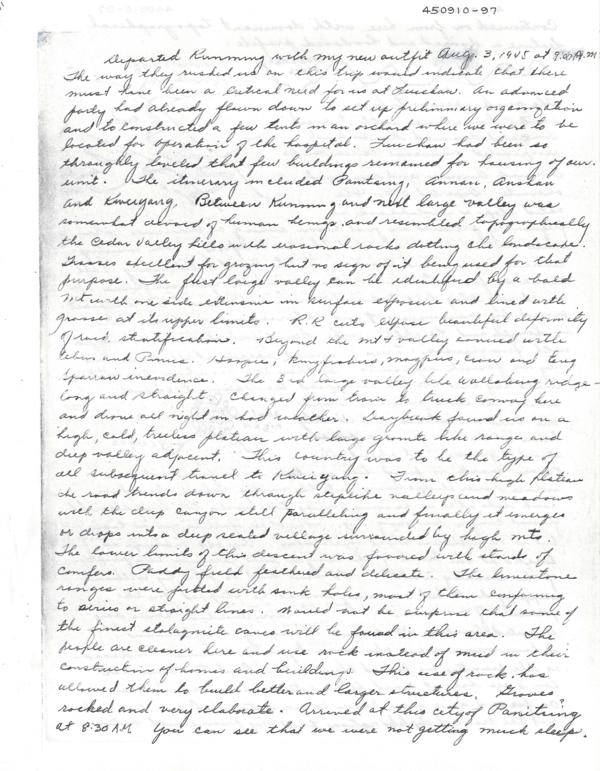 450910-97
Departed Kunming with my new outfit Aug. 3, 1945 at 9:00 A.M.
The way they rushed us on this trip would indicate that there
must have been a critical need for us at Liuchow. An advanced
party had already flown down to set up prelimmary organization
and to constructed a few tents in an orchard where we were to be
located for operation of the hospital. Liuchow had been so
throughly leveled that few buildings remained for housing of our
unit. The itinerary included Panhsing, Annan, Anshun
and Kweiyang. Between Kunming and next large valley was
somewhat devoid of human beings and resembled topographically
the Cedar Valley hills with erosional rocks dotting the landscape.
Grasses excellent for grazing but no sign of it being used for that
purpose. The first large valley can be identified by a bald
Mt with one side extensive in surface exposure and lined with
grasses at its upper limits. R.R cuts expose beautiful deformity
of rock stratifications. Beyond the mt & valley covered with
and Pines. Hoopoe, Kingfishers, magpies, crow and
sparrow in evidence. The 3rd large valley like ridge -
long and straight. Changed from train to truck convoy here
and drove all night in bad weather. Daybreak found us on a
high, cold, treeless plateau with large granite like range and
deep valley adjacent. This country was to be the type of
all subsequent travel to Kweiyang. From this high plateau
the road trends down through steplike valleys and meadows
with the deep canyon still paralleling and finally it emerges
or drops into a deep sealed village surrounded by high mts.
The lower limits of this descent was favored with stands of
conifers. Paddy field feathered and delicate. The limestone
ranges were pitted with sink holes, most of them conforming
to series or straight lines. Would not be surprise that some of
the finest stalagmite caves will be found in this area. The
people are cleaner here and use rock instead of mud in their
construction of homes and buildings. This use of rock has
allowed them to build better and larger structures. Groves
rocked and very elaborate. Arrived at this city of Panhsing
at 8:30 AM You can see that we were not getting much sleep.